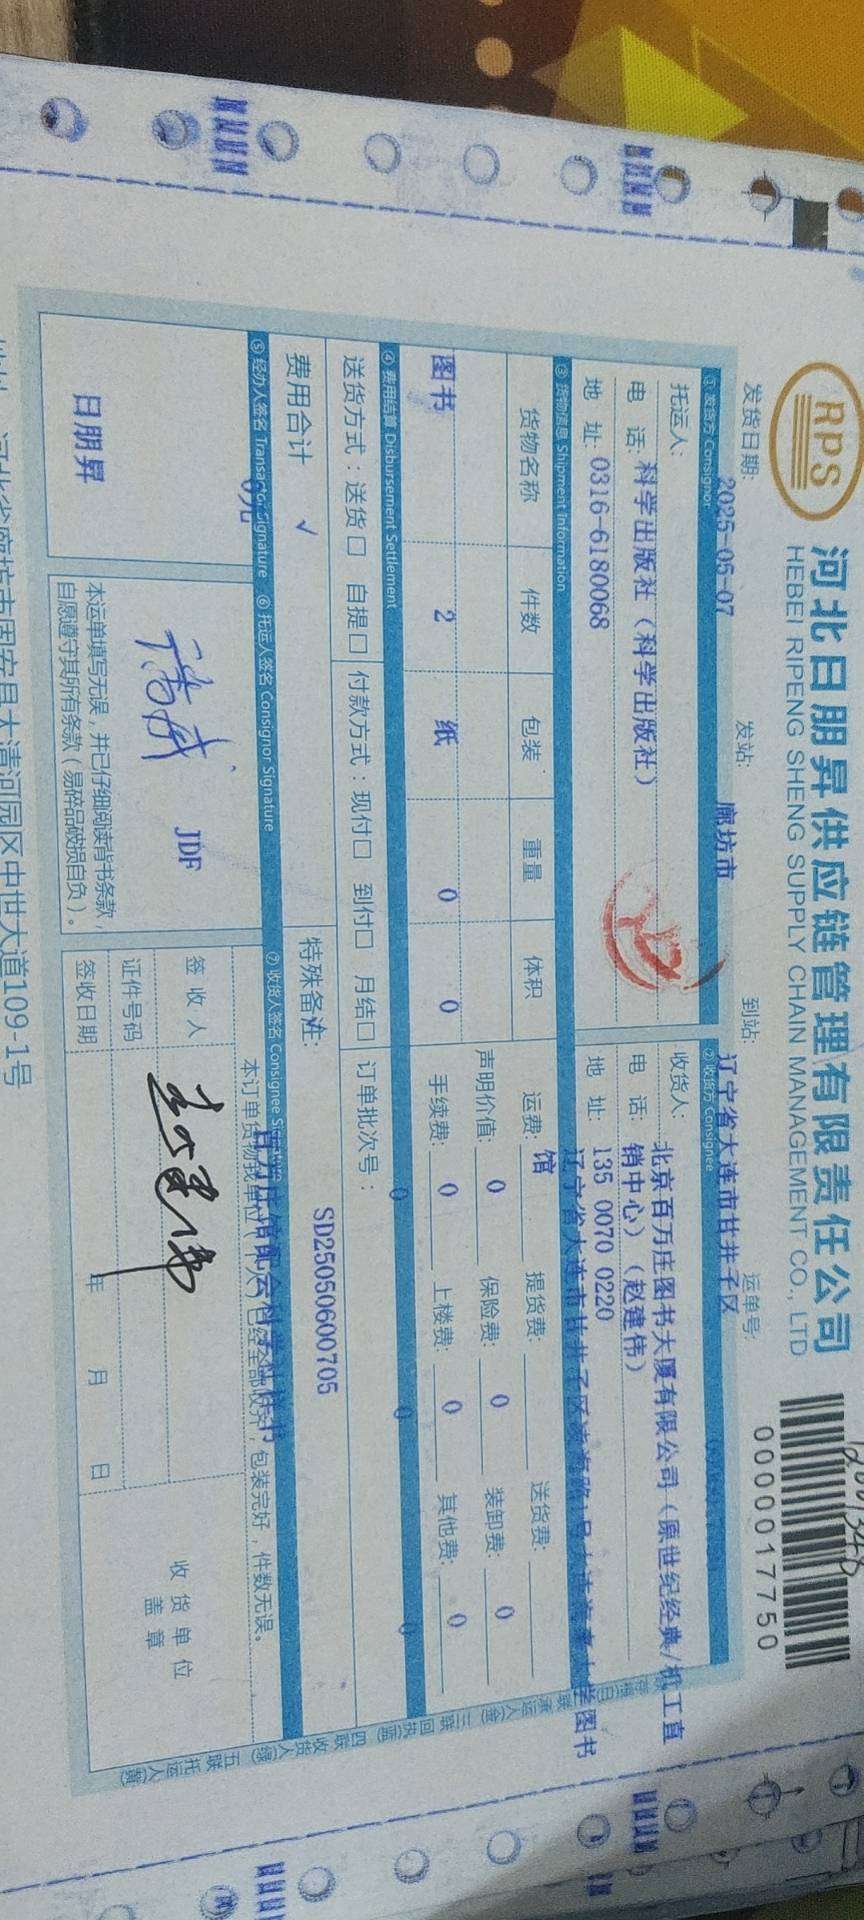 RPS
河北日朋昇供应链管理有限责任公司
HEBEI RIPENG SHENG SUPPLY CHAIN MANAGEMENT CO., LTD
0000017750
发货日期: 2025-05-07 发站: 廊坊市 到站: 辽宁省大连市甘井子区 运单号:
① 发货方 Consignor ② 收货方 Consignee
托运人: 收货人: 北京百万庄图书大厦有限公司(原世纪经典/机工直
电 话: 科学出版社(科学出版社) 电 话: 销中心)(赵建伟)
地 址: 0316-6180068 地 址: 135 0070 0220
③ 货物信息 Shipment Information 辽宁省大连市甘井子区凌海路1号大连海事大学图书
货物名称 件数 包装 重量 体积 运费: 馆 提货费: 送货费:
声明价值: 0 保险费: 0 装卸费: 0
图书 2 纸 0 0 手续费: 0 上楼费: 0 其他费: 0
④ 费用结算 Disbursement Settlement 0 0 0
送货方式:送货□ 自提□ 付款方式:现付□ 到付□ 月结□ 订单批次号:
费用合计 √ 特殊备注: SD25050600705
0元
⑤ 经办人签名 Transactor Signature ⑥ 托运人签名 Consignor Signature ⑦ 收货人签名 Consignee Signature
本订单货物我单位(本人)已经全部收齐,包装完好,件数无误。
日朋昇 JDF 签 收 人 赵建伟 收 货 单 位
盖 章
本运单填写无误,并已仔细阅读背书条款, 证件号码
自愿遵守其所有条款(易碎品破损自负)。 签收日期 年 月 日
联承运人(金) 三联回执(蓝) 四联收货人(绿) 五联托运人(黄)
地址:河北省廊坊市固安县大清河园区中世大道109-1号